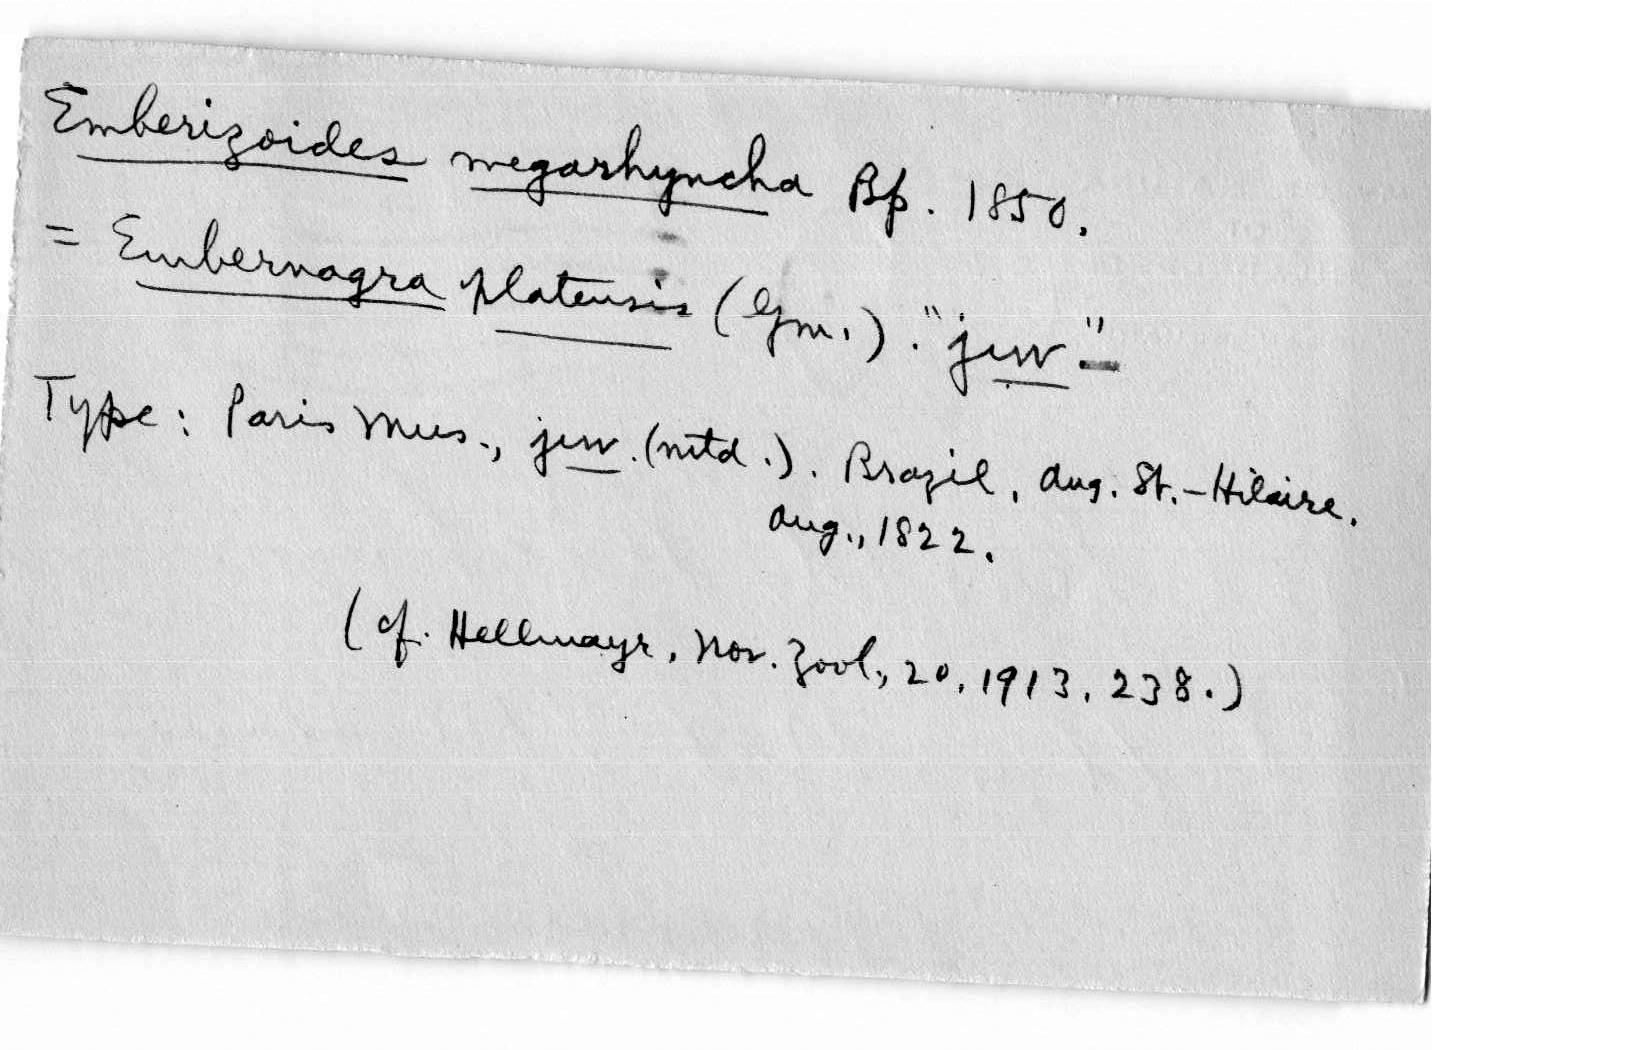 Emberizoides megarhyncha Bp. 1850.
= Embernagra platensis (Gm.). "juv"
Type: Paris Mus., juv. (mtd.). Brazil, Aug. St.-Hilaire.
Aug., 1822.
(cf. Hellmayr, Nov. Zool., 20, 1913, 238.)